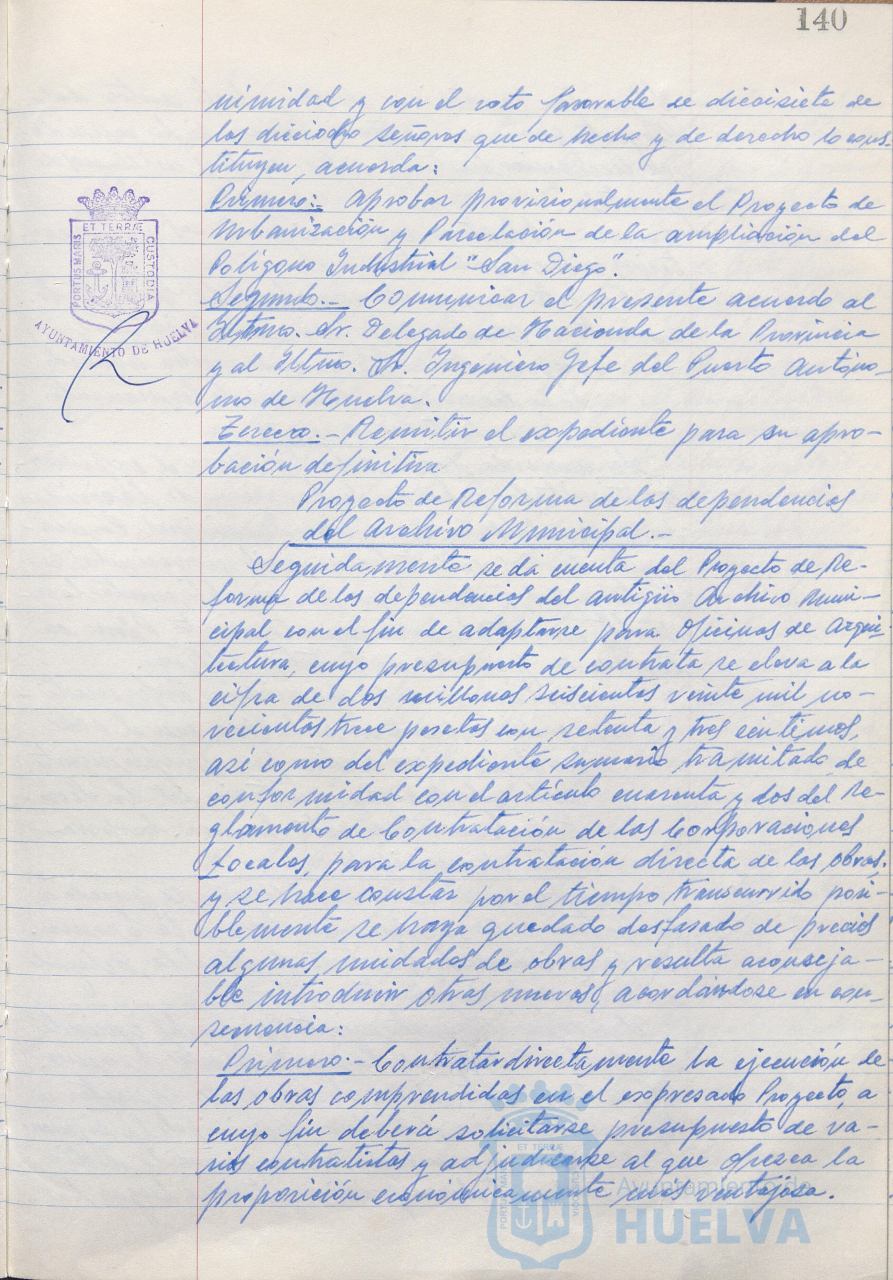 140
nimidad y con el voto favorable de diecisiete de
los dieciocho señores que de hecho y de derecho lo cons-
tituyen, acuerda:
Primero:- Aprobar provisionalmente el Proyecto de
Urbanización y Parcelación de la ampliación del
Polígono Industrial "San Diego".
Segundo.- Comunicar el presente acuerdo al
Iltmo. Sr. Delegado de Hacienda de la Provincia
y al Iltmo. Sr. Ingeniero Jefe del Puerto Autóno-
mo de Huelva.
Tercero.- Remitir el expediente para su apro-
bación definitiva
Proyecto de Reforma de las dependencias
del Archivo Municipal.-
Seguidamente se da cuenta del Proyecto de Re-
forma de las dependencias del antigüo Archivo Muni-
cipal, con el fin de adaptarse para Oficinas de Arqui-
tectura, cuyo presupuesto de contrata se eleva a la
cifra de dos millones seiscientas veinte mil no-
vecientas trece pesetas con setenta y tres céntimos,
así como del expediente sumario tramitado, de
conformidad con el artículo cuarenta y dos del Re-
glamento de Contratación de las Corporaciones
Locales, para la contratación directa de las obras,
y se hace constar por el tiempo transcurrido posi-
blemente se haya quedado desfasado de precios
algunas unidades de obras y resulta aconseja-
ble introducir otras nuevas, acordándose en con-
secuencia:
Primero.- Contratar directamente la ejecución de
las obras comprendidas en el expresado Proyecto, a
cuyo fin deberá solicitarse presupuesto de va-
rios contratistas y adjudicarse al que ofrezca la
proposición económicamente más ventajosa.
ET TERRÆ
PORTUS MARIS
CUSTODIA
AYUNTAMIENTO DE HUELVA
ET TERRÆ
PORTUS MARIS
CUSTODIA
Ayuntamiento de
HUELVA